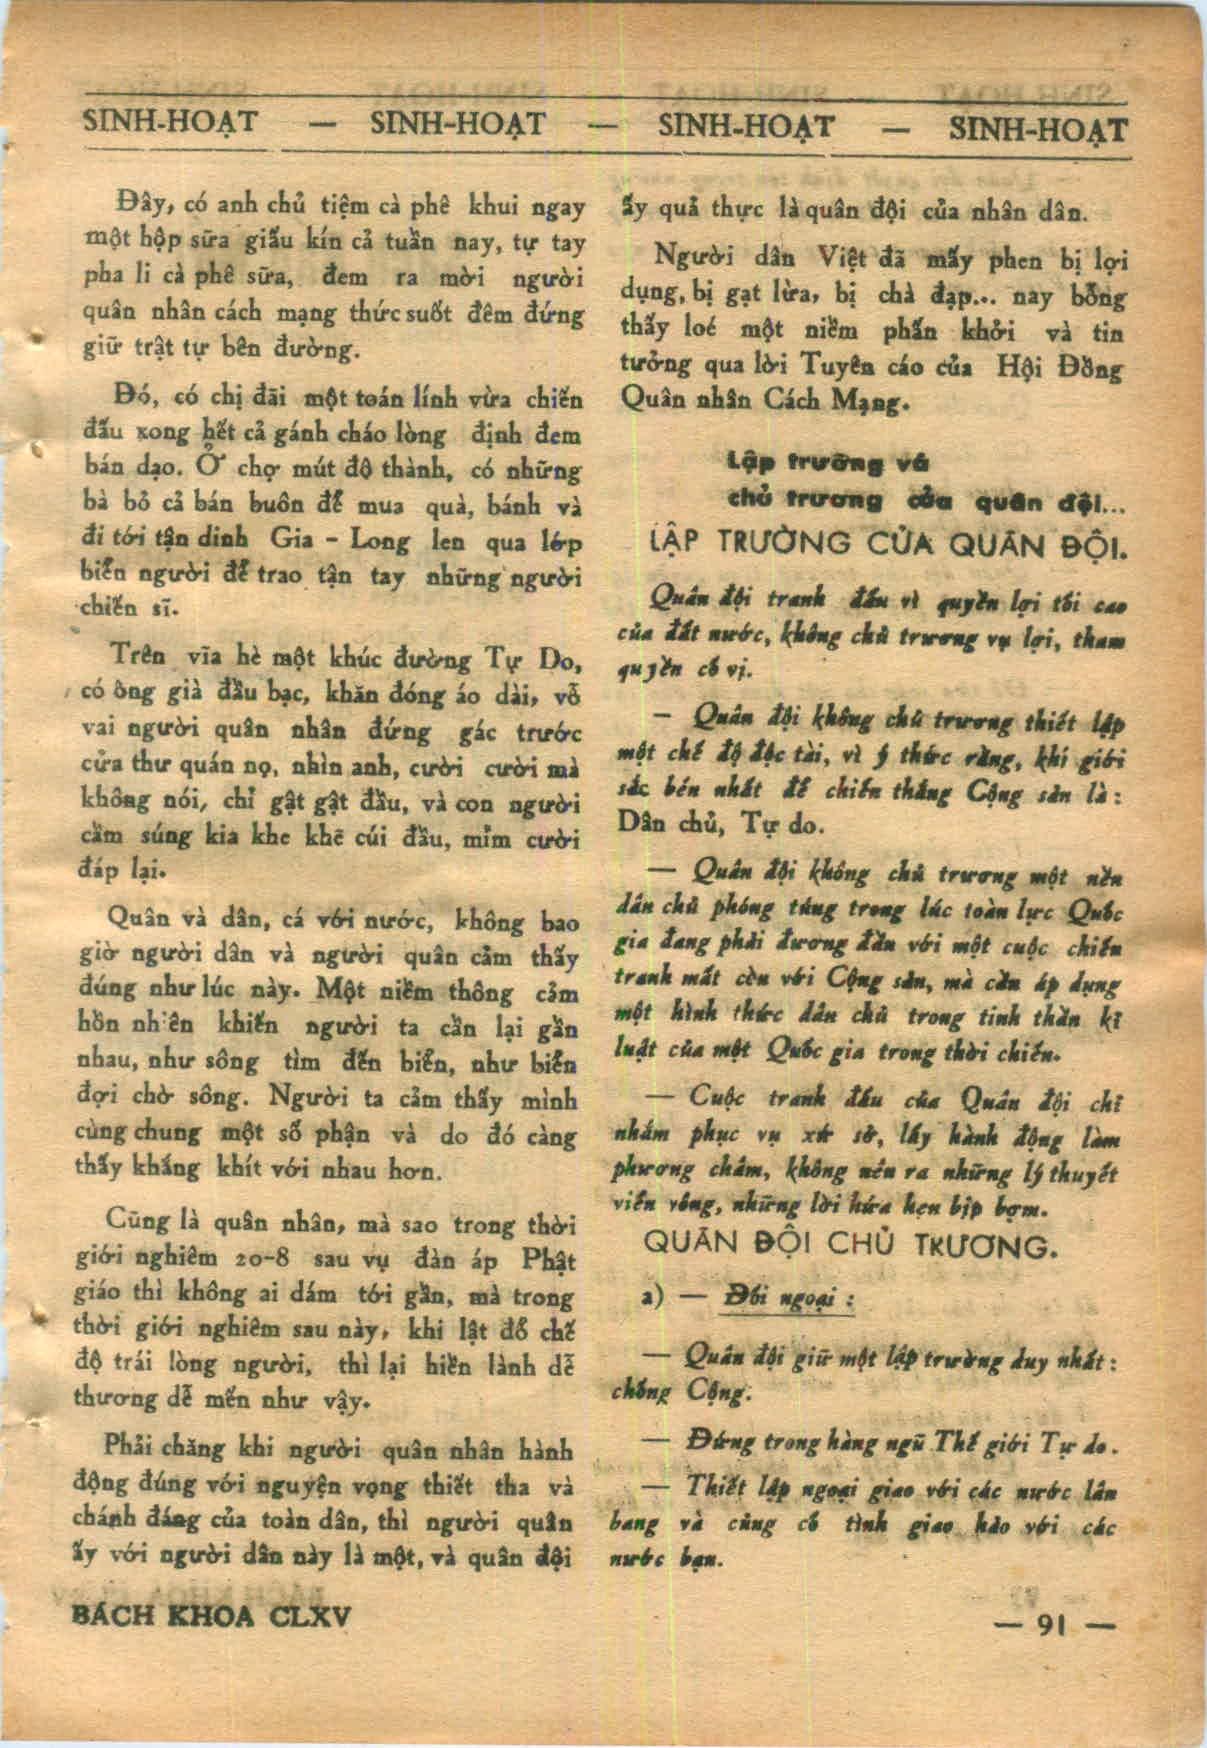 SINH-HOẠT — SINH-HOẠT — SINH-HOẠT — SINH-HOẠT
Đây, có anh chủ tiệm cà phê khui ngay
một hộp sữa giấu kín cả tuần nay, tự tay
pha li cà phê sữa, đem ra mời người
quân nhân cách mạng thức suốt đêm đứng
giữ trật tự bên đường.
Đó, có chị đãi một toán lính vừa chiến
đấu xong hết cả gánh cháo lòng định đem
bán dạo. Ở chợ mút độ thành, có những
bà bỏ cả bán buôn để mua quà, bánh và
đi tới tận dinh Gia - Long len qua lớp
biển người để trao tận tay những người
chiến sĩ.
Trên vĩa hè một khúc đường Tự Do,
có ông già đầu bạc, khăn đóng áo dài, vỗ
vai người quân nhân đứng gác trước
cửa thư quán nọ, nhìn anh, cười cười mà
không nói, chỉ gật gật đầu, và con người
cầm súng kia khe khẽ cúi đầu, mỉm cười
đáp lại.
Quân và dân, cá với nước, không bao
giờ người dân và người quân cảm thấy
đúng như lúc này. Một niềm thông cảm
hồn nhiên khiến người ta cần lại gần
nhau, như sông tìm đến biển, như biển
đợi chờ sông. Người ta cảm thấy mình
cùng chung một số phận và do đó càng
thấy khắng khít với nhau hơn.
Cũng là quân nhân, mà sao trong thời
giới nghiêm 20-8 sau vụ đàn áp Phật
giáo thì không ai dám tới gần, mà trong
thời giới nghiêm sau này, khi lật đổ chế
độ trái lòng người, thì lại hiền lành dễ
thương dễ mến như vậy.
Phải chăng khi người quân nhân hành
động đúng với nguyện vọng thiết tha và
chánh đáng của toàn dân, thì người quân
ấy với người dân này là một, và quân đội
ấy quả thực là quân đội của nhân dân.
Người dân Việt đã mấy phen bị lợi
dụng, bị gạt lừa, bị chà đạp... nay bỗng
thấy loé một niềm phấn khởi và tin
tưởng qua lời Tuyên cáo của Hội Đồng
Quân nhân Cách Mạng.
Lập trường và
chủ trương của quân đội...
LẬP TRƯỜNG CỦA QUÂN ĐỘI.
Quân đội tranh đấu vì quyền lợi tối cao
của đất nước, không chủ trương vụ lợi, tham
quyền cố vị.
— Quân đội không chủ trương thiết lập
một chế độ độc tài, vì ý thức rằng, khí giới
sắc bén nhất để chiến thắng Cộng sản là :
Dân chủ, Tự do.
— Quân đội không chủ trương một nền
dân chủ phóng túng trong lúc toàn lực Quốc
gia đang phải đương đầu với một cuộc chiến
tranh mất còn với Cộng sản, mà cần áp dụng
một hình thức dân chủ trong tinh thần kỉ
luật của một Quốc gia trong thời chiến.
— Cuộc tranh đấu của Quân đội chỉ
nhằm phục vụ xứ sở, lấy hành động làm
phương châm, không nêu ra những lý thuyết
viển vông, những lời hứa hẹn bịp bợm.
QUÂN ĐỘI CHỦ TRƯƠNG.
a) — Đối ngoại :
— Quân đội giữ một lập trường duy nhất :
chống Cộng.
— Đứng trong hàng ngũ Thế giới Tự do.
— Thiết lập ngoại giao với các nước lân
bang và củng cố tình giao hảo với các
nước bạn.
BÁCH KHOA CLXV
— 91 —